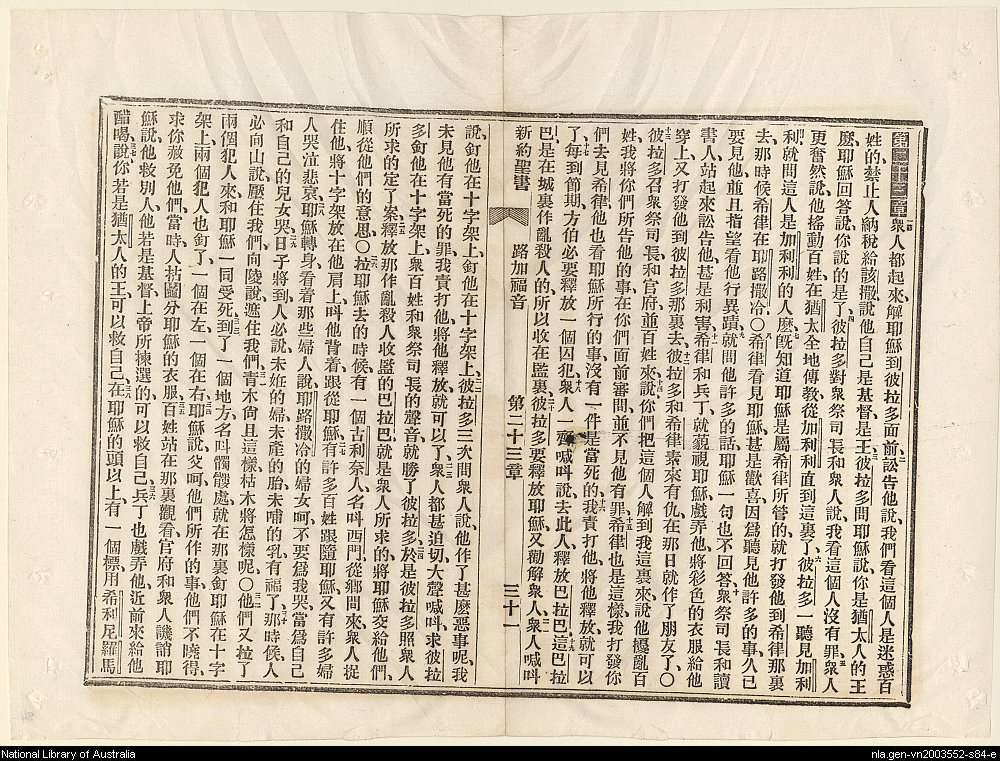 第二十三章 衆人都起來、解耶穌到彼拉多面前、訟告他說、我們看這個人是迷惑百
姓的、禁止人納稅給該撒、說他自己是基督、是王、彼拉多問耶穌說、你是猶太人的王
麽、耶穌回答說、你說的是了、彼拉多對衆祭司長和衆人說、我看這個人沒有罪、衆人
更奮然說、他搖動百姓、在猶太全地傳教、從加利利直到這裏了、彼拉多一聽見加利
利、就問這人是加利利的人麽、旣知道耶穌是屬希律所管的、就打發他到希律那裏
去、那時候希律在耶路撒冷〇希律看見耶穌甚是歡喜、因爲聽見他許多的事、久已
要見他、並且指望看他行異蹟、就問他許多的話、耶穌一句也不回答、衆祭司長和讀
書人站起來訟告他甚是利害、希律和兵丁、就藐視耶穌、戲弄他、將彩色的衣服給他
穿上、又打發他到彼拉多那裏去、彼拉多和希律素來有仇、在那日就作了朋友了、〇
彼拉多召衆祭司長和官府、並百姓來、說、你們把這個人解到我這裏來、說他擾亂百
姓、我將你們所告他的事、在你們面前審問、並不見他有罪、希律也是這樣、我打發你
們去見希律、他也看耶穌所行的事、沒有一件是當死的、我責打他、將他釋放、就可以
了、每到節期、方伯必要釋放一個囚犯、衆人一齊喊叫說、去此人、釋放巴拉巴、這巴拉
巴是在城裏作亂殺人的、所以收在監裏、彼拉多要釋放耶穌、又勸解衆人、衆人喊叫
新約聖書 路加福音 第二十三章 三十一
說、釘他在十字架上、釘他在十字架上、彼拉多三次問衆人說、他作了甚麽惡事呢、我
未見他有當死的罪、我責打他、將他釋放就可以了、衆人都甚迫切、大聲喊叫、求彼拉
多釘他在十字架上、衆百姓和衆祭司長的聲音、就勝了彼拉多、於是彼拉多照衆人
所求的定了案、釋放那作亂殺人收監的巴拉巴、就是衆人所求的、將耶穌交給他們、
順從他們的意思、〇拉耶穌去的時候、有一個古利奈人、名叫西門、從鄉間來、衆人捉
住他、將十字架放在他肩上、叫他背着跟從耶穌、有許多百姓跟隨耶穌、又有許多婦
人哭泣悲哀、耶穌轉身看着那些婦人說、耶路撒冷的婦女呵、不要爲我哭、當爲自己
和自己的兒女哭、日子將到、人必說、未姙的婦、未產的胎、未哺的乳、有福了、那時候、人
必向山說、壓住我們、向陵說、遮住我們、青木尙且這樣、枯木將怎樣呢、〇他們又拉了
兩個犯人來、和耶穌一同受死、到了一個地方、名叫髑髏處、就在那裏釘耶穌在十字
架上、兩個犯人也釘了、一個在左、一個在右、耶穌說、父呵、他們所作的事、他們不曉得、
求你赦免他們、當時人拈鬮分耶穌的衣服、百姓站在那裏觀看、官府和衆人譏誚耶
穌說、他救別人、他若是基督上帝所揀選的、可以救自己、兵丁也戲弄他、近前來給他
醋喝、說、你若是猶太人的王、可以救自己、在耶穌的頭以上有一個標、用希利尼羅馬
National Library of Australia
nla.gen-vn2003552-s84-e